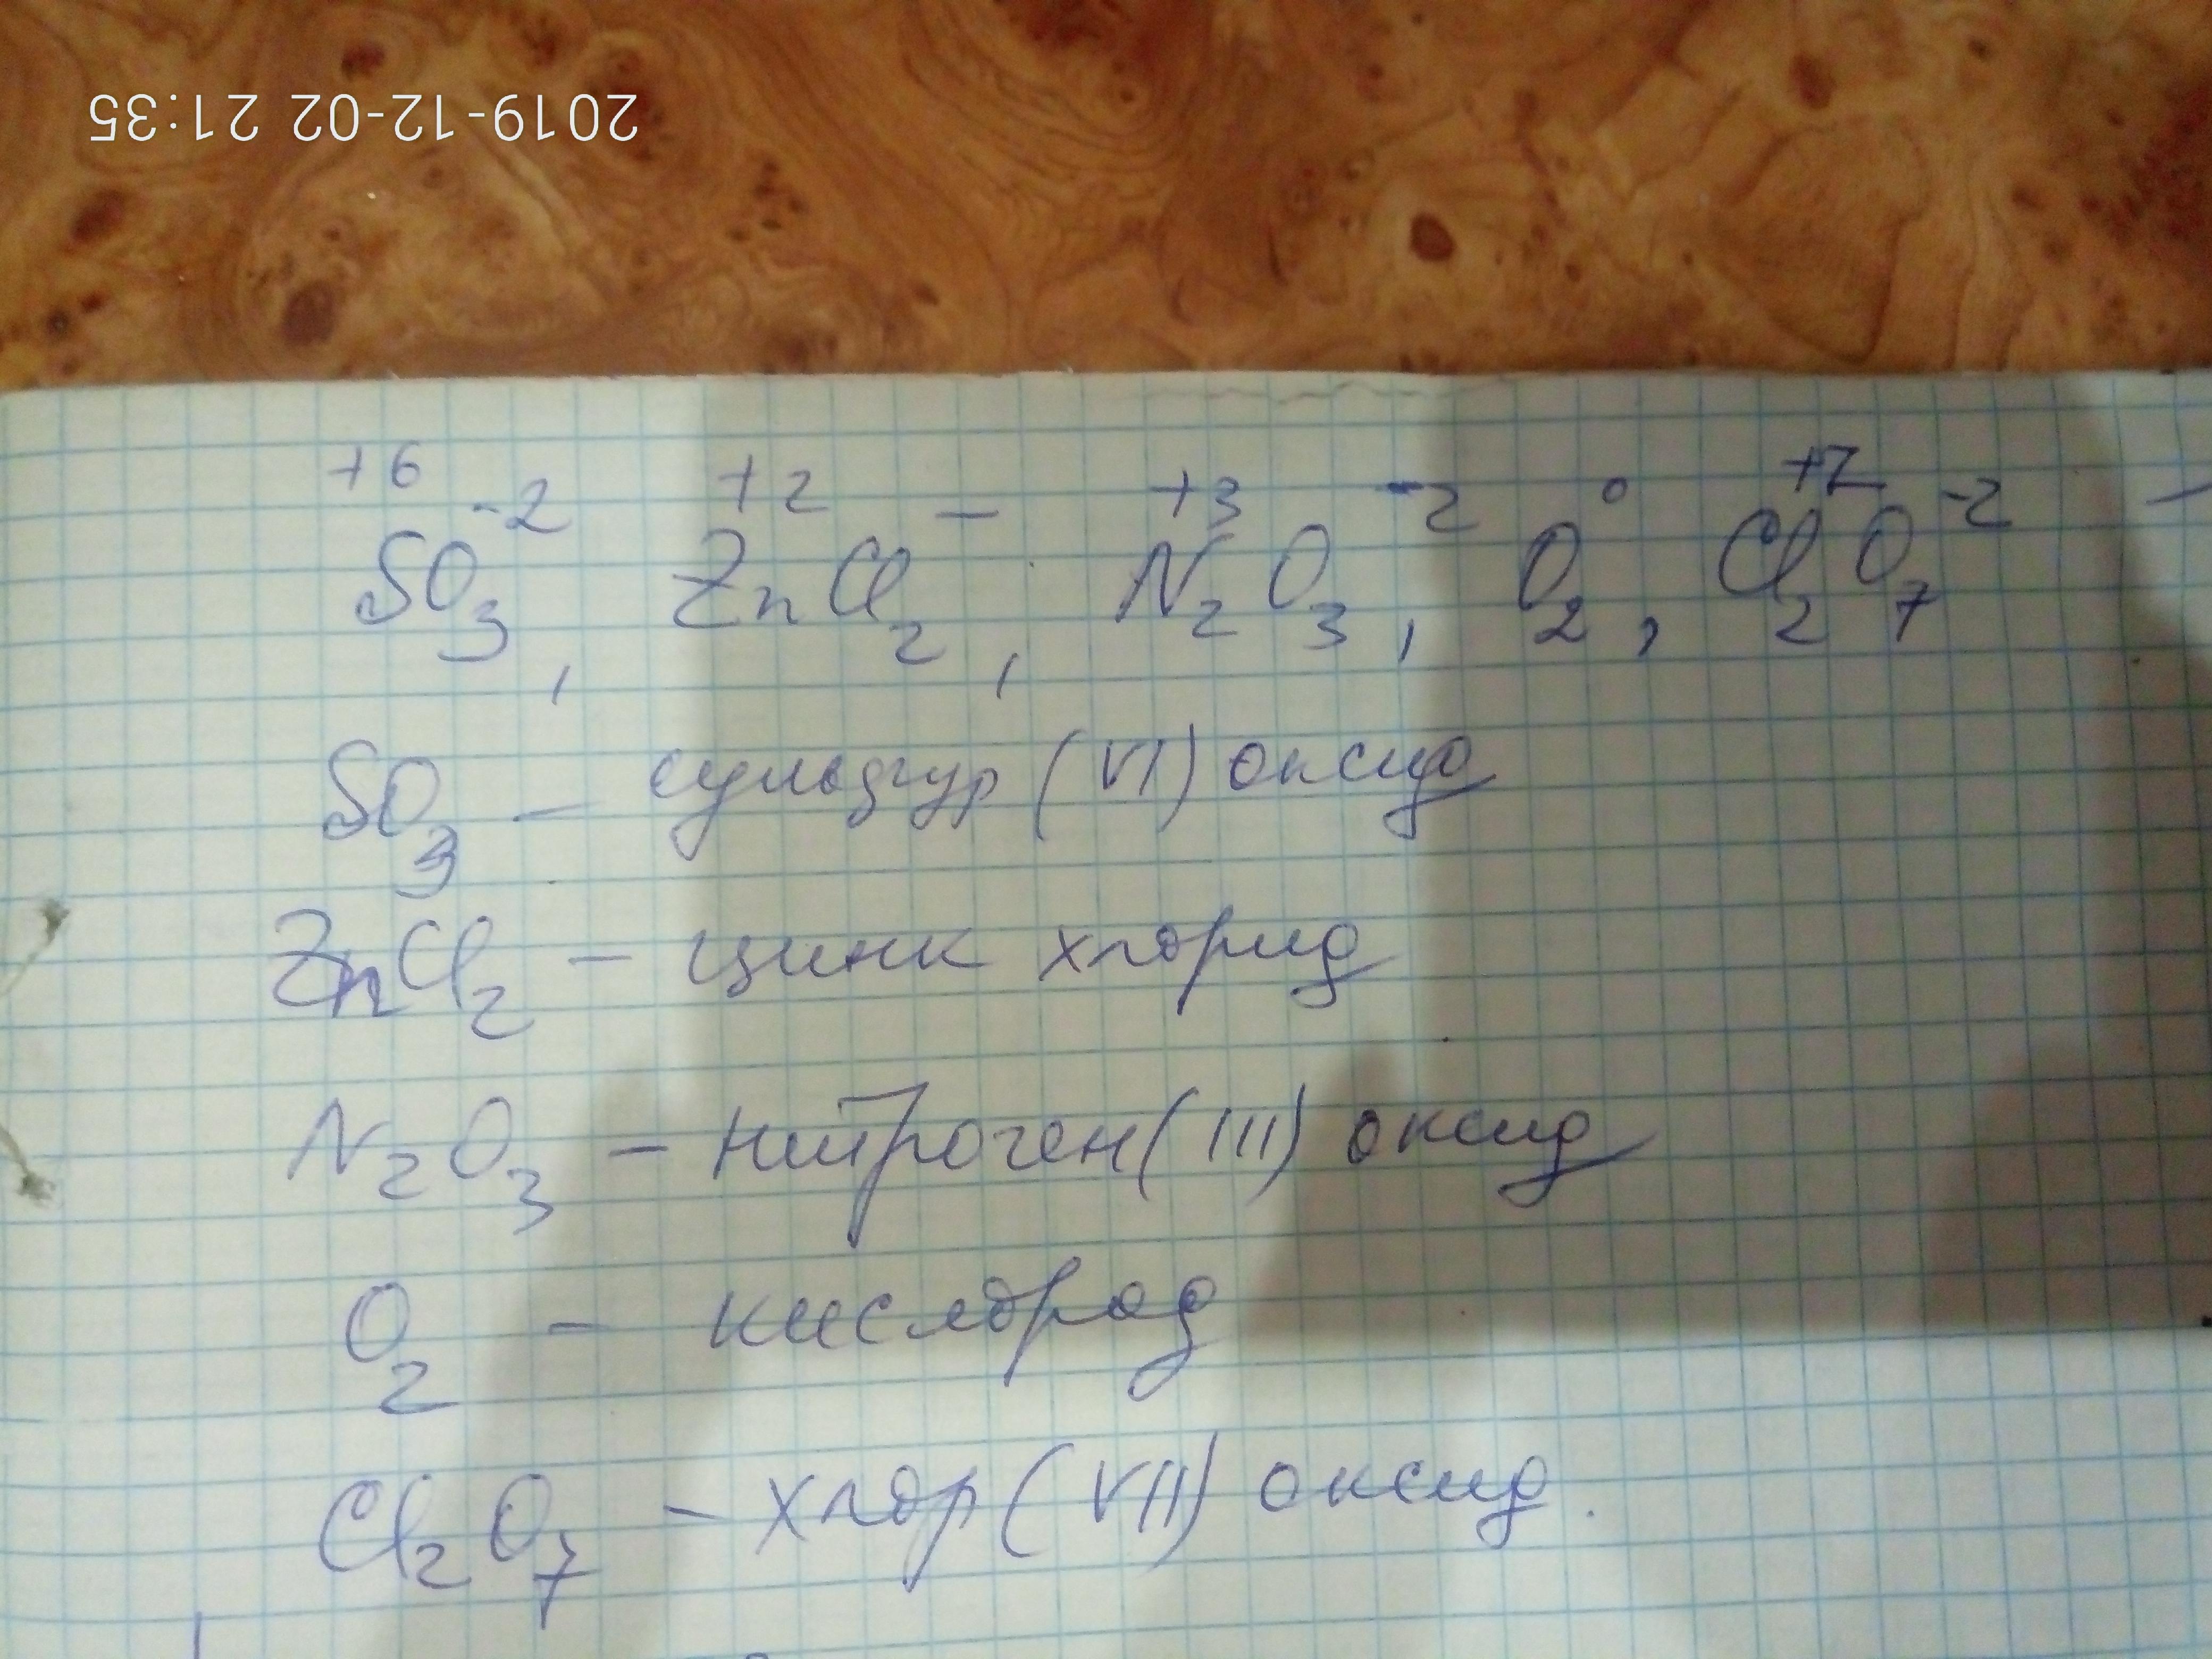 2019-12-02 21:35
+6 -2 +2 - +3 -2 0 +7 -2 -
SO3, ZnCl2, N2O3, O2, Cl2O7
SO3 - сульфур (VI) оксид
ZnCl2 - цинк хлорид
N2O3 - нитроген (III) оксид
O2 - кислород
Cl2O7 - хлор (VII) оксид.